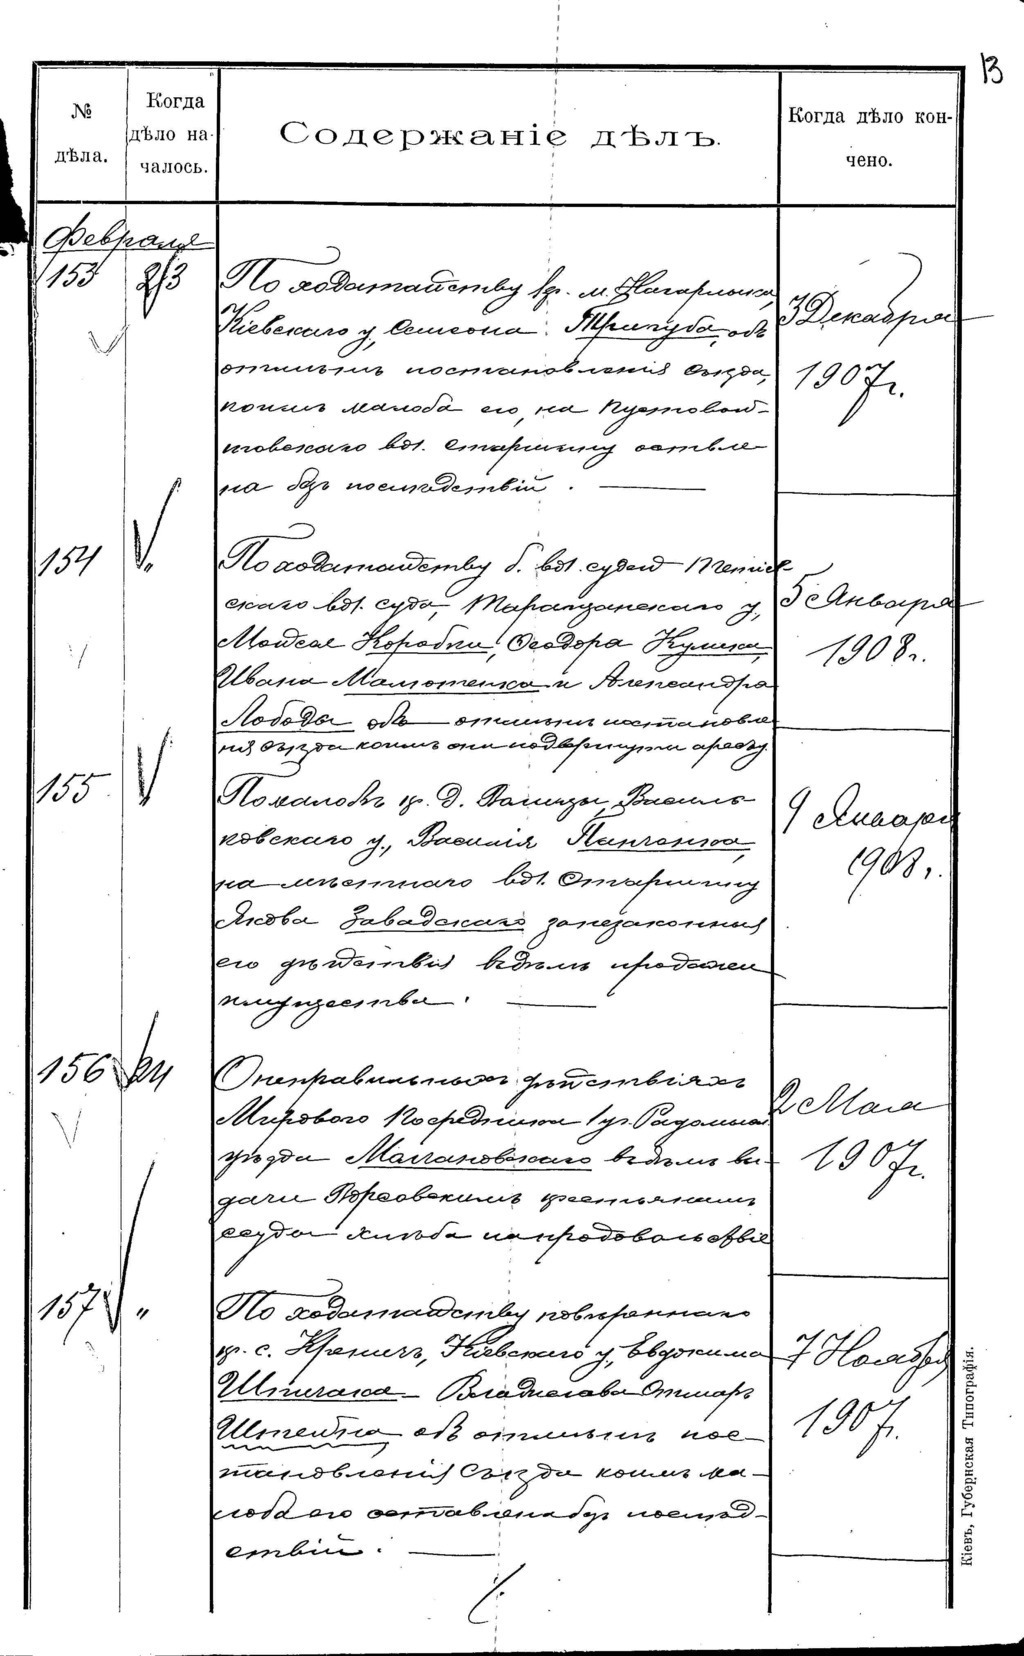 13
№ дѣла.
Когда дѣло на-
чалось.
Содержаніе дѣлъ.
Когда дѣло кон-
чено.
Февраля
153 23
По ходатайству кр. м. Кагарлыка,
Кіевскаго у, Семена Трипуба, объ
отмѣнѣ постановленія Съѣзда,
коимъ жалоба его, на Пустовой-
товскаго вол. Старшину оставле-
на безъ послѣдствій. —
3 Декабря
1907 г.
154 "
По ходатайству б. вол. судей
скаго вол. суда, Таращанскаго у,
Моисея Коробки, Ѳеодора Кулика,
Ивана Малютенка и Александра
Лободы объ отмѣнѣ постановле
нія Съѣзда коимъ они подвергнуты аресту.
5 Января
1908 г.
155
По жалобѣ кр. д. Василь-
ковскаго у., Василія Панченка,
на мѣстнаго вол. Старшину
Якова Завадскаго за незаконныя
его дѣйствія въ дѣлѣ продажи
имущества. —
9 Января
1908 г.
156 24
О неправильныхъ дѣйствіяхъ
Мирового Посредника 1 уч. Радомысл.
уѣзда въ дѣлѣ вы-
дачи крестьянамъ
ссуды хлѣба на продовольствіе
2 Мая
1907 г.
157 "
По ходатайству повѣреннаго
кр. с. Креничъ, Кіевскаго у, Евдокима
Шпичака Владислава Отмаръ
Штейна объ отмѣнѣ пос-
тановленія Съѣзда коимъ жа-
лоба его оставлена безъ послѣд-
ствій. —
7 Ноября
1907 г.
Кіевъ, Губернская Типографія.